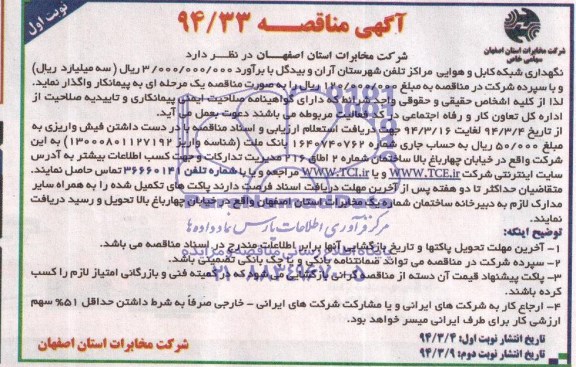 نوبت اول
آگهی مناقصه ۹۴/۳۳
شرکت مخابرات استان اصفهان
سهامی خاص
شرکت مخابرات استان اصفهان در نظر دارد
نگهداری شبکه کابل و هوایی مراکز تلفن شهرستان آران و بیدگل با برآورد ۳/۰۰۰/۰۰۰/۰۰۰ ریال (سه میلیارد ریال)
و با سپرده شرکت در مناقصه به مبلغ ریال را به صورت مناقصه یک مرحله ای به پیمانکار واگذار نماید.
لذا از کلیه اشخاص حقیقی و حقوقی واجد شرائط که دارای گواهینامه صلاحیت ایمنی پیمانکاری و تاییدیه صلاحیت از
اداره کل تعاون کار و رفاه اجتماعی در کد فعالیت مربوطه می باشند دعوت بعمل می آید.
از تاریخ ۹۴/۳/۴ لغایت ۹۴/۳/۱۶ جهت دریافت استعلام ارزیابی و اسناد مناقصه با در دست داشتن فیش واریزی به
مبلغ ۵۰/۰۰۰ ریال به حساب جاری شماره ۱۶۴۰۷۴۰۷۶۲ بانک ملی (شناسه واریز ۱۳۰۰۰۸۰۱۱۲۷۱۹۲) به این
شرکت واقع در خیابان چهارباغ بالا ساختمان شماره ۲ اطاق ۱۶ مدیریت تدارکات و جهت کسب اطلاعات بیشتر به آدرس
سایت اینترنتی شرکت WWW.TCE.ir و یا WWW.TCI.ir مراجعه و یا با شماره تلفن ۳۶۶۶۰۱۳ تماس حاصل نمایند.
متقاضیان حداکثر تا دو هفته پس از آخرین مهلت دریافت اسناد فرصت دارند پاکت های تکمیل شده را به همراه سایر
مدارک لازم به دبیرخانه ساختمان شماره یک مخابرات استان اصفهان واقع در خیابان چهارباغ بالا تحویل و رسید دریافت
نمایند.
مرکز فرآوری اطلاعات پارس نماد داده ها
توضیح اینکه:
۱- آخرین مهلت تحویل پاکتها و تاریخ بازگشایی آنها برابر اطلاعات مندرج در اسناد مناقصه می باشد.
۲- سپرده شرکت در مناقصه می تواند ضمانتنامه بانکی و یا چک بانکی تضمینی باشد.
۳- پاکت پیشنهاد قیمت آن دسته از مناقصه گرانی بازگشایی می شود که در کمیته فنی و بازرگانی امتیاز لازم را کسب
کرده باشند.
۴- ارجاع کار به شرکت های ایرانی و یا مشارکت شرکت های ایرانی - خارجی صرفاً به شرط داشتن حداقل ۵۱٪ سهم
ارزشی کار برای طرف ایرانی میسر خواهد بود.
تاریخ انتشار نوبت اول: ۹۴/۳/۴
تاریخ انتشار نوبت دوم: ۹۴/۳/۹
شرکت مخابرات استان اصفهان